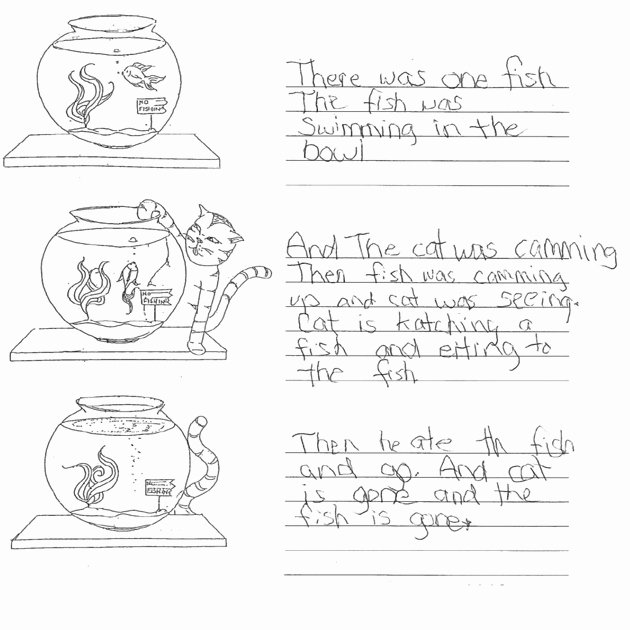 NO
FISHING
There was one fish
The fish was
Swimming in the
bowl
NO
FISHING
And The cat was camming
Then fish was camming
up and cat was seeing.
Cat is katching a
fish and eiting to
the fish
NO
FISHING
Then he ate th fish
and go. And cat
is gone and the
fish is gone.